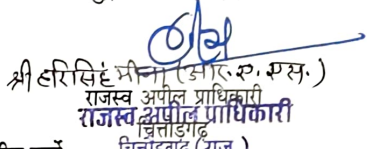 श्री हरिसिंह मीना (आर. ए. एस. )
राजस्व अपील प्राधिकारी
राजस्व अपील प्राधिकारी
चित्तौड़गढ़
चित्तौड़गढ़ (राज.)